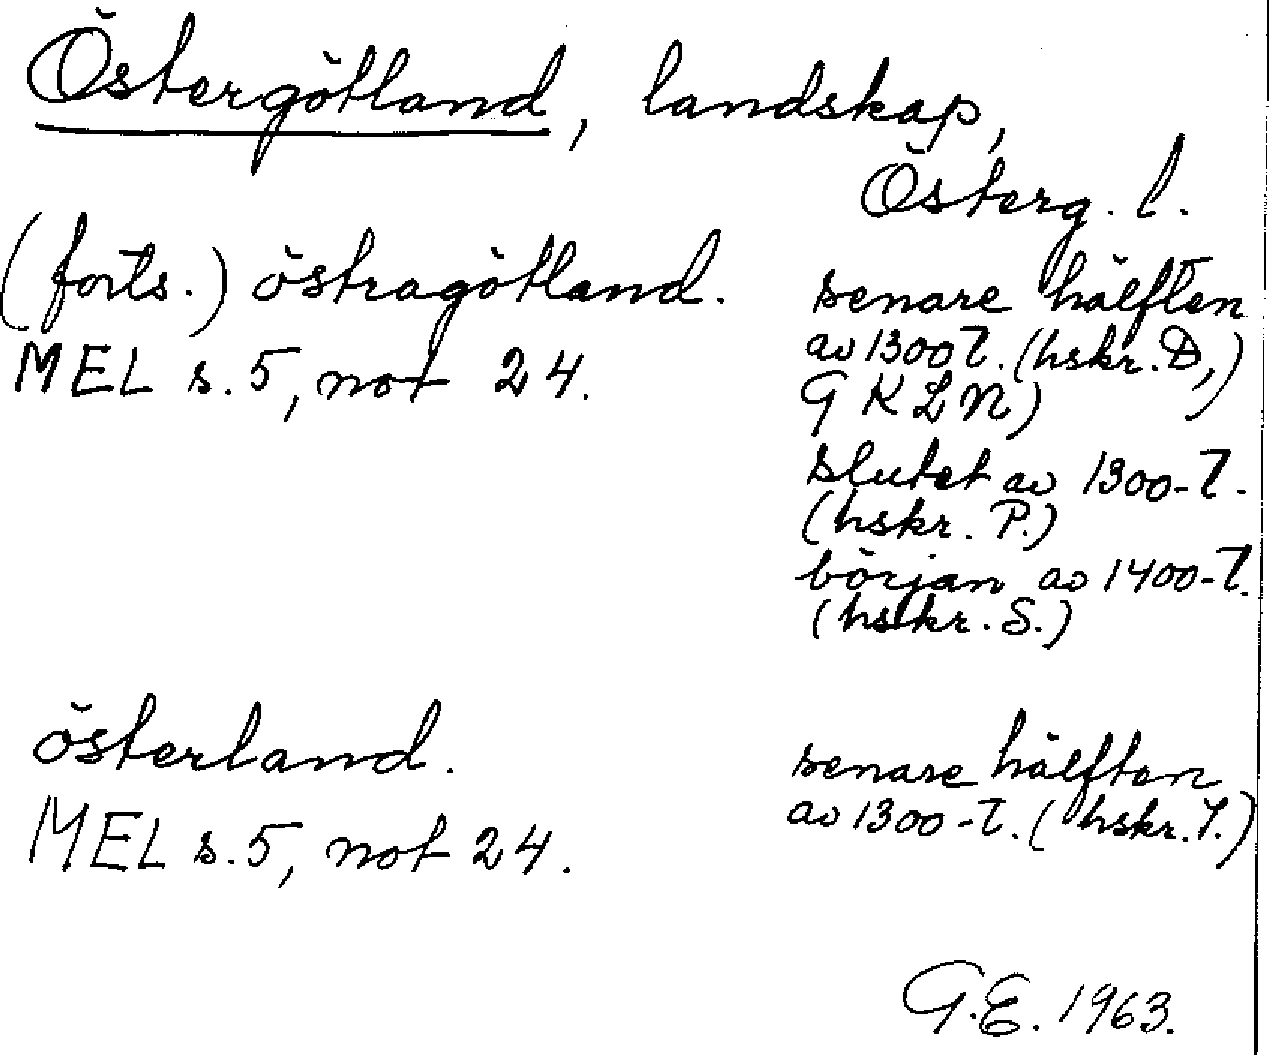 Östergötland, landskap,
Österg. l.
(forts.) östragötland.
MEL s. 5, not 24.
senare hälften
av 1300 t. (hskr. D,)
G K L N)
slutet av 1300-t.
(hskr. P.)
början av 1400-t.
(hskr. S.)
österland.
MEL s. 5, not 24.
senare hälften
av 1300-t. (hskr. Y.)
G.E. 1963.